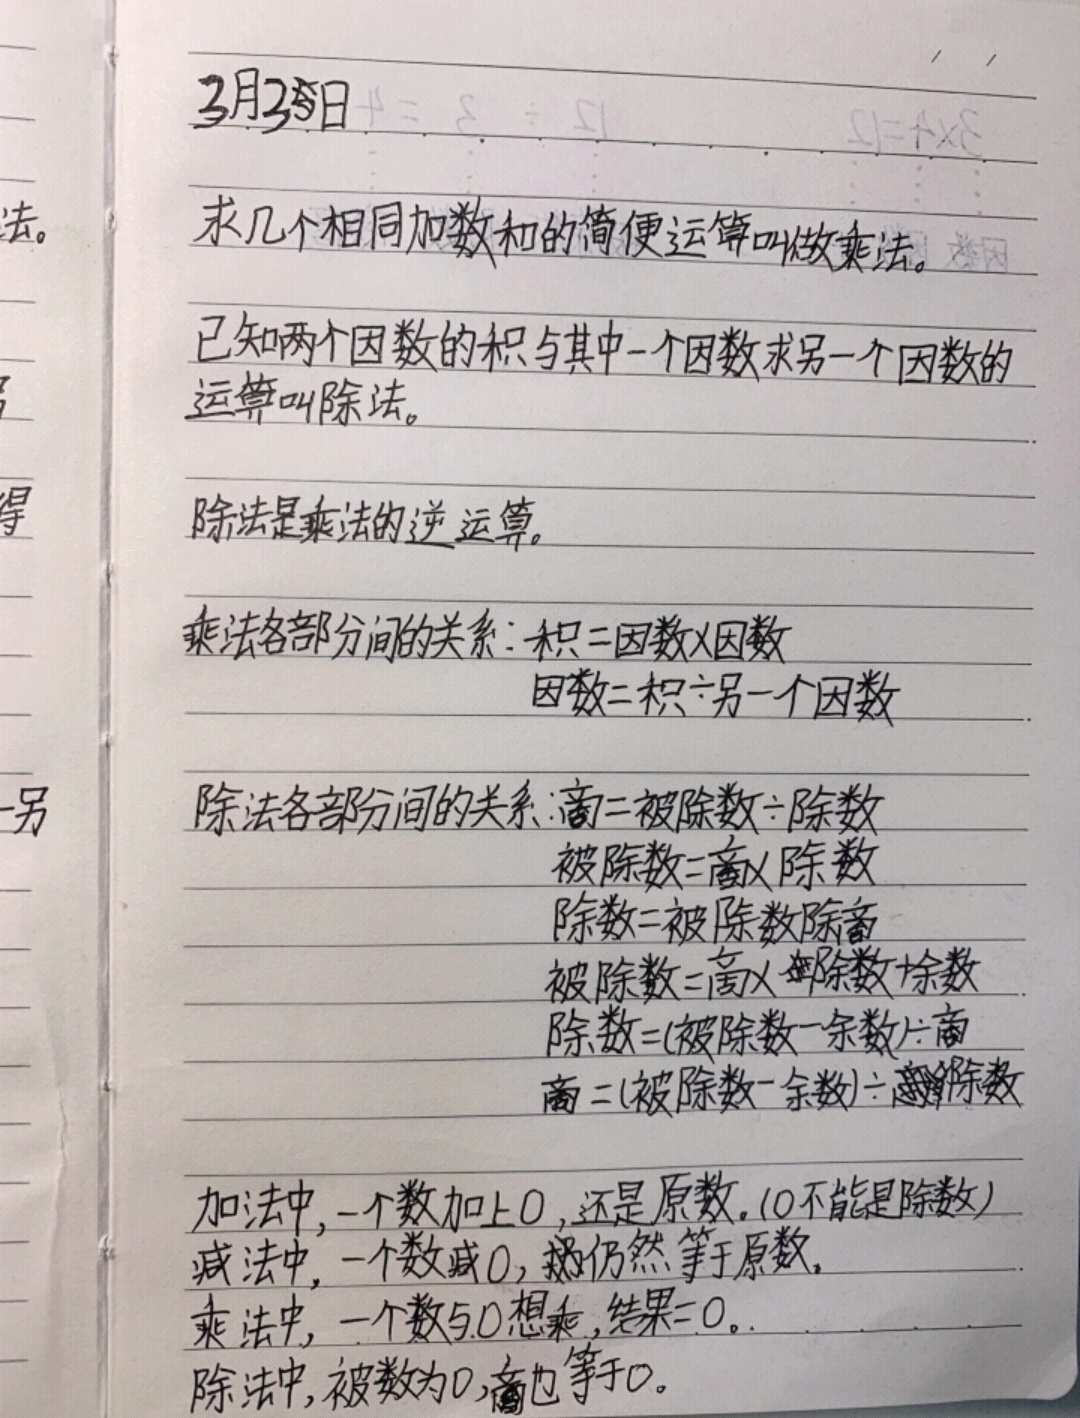 3月25日
求几个相同加数和的简便运算叫做乘法。
已知两个因数的积与其中一个因数求另一个因数的
运算叫除法。
除法是乘法的逆运算。
乘法各部分间的关系:积=因数×因数
因数=积÷另一个因数
除法各部分间的关系:商=被除数÷除数
被除数=商×除数
除数=被除数除商
被除数=商×除数+余数
除数=(被除数-余数)÷商
商=(被除数-余数)÷除数
加法中,一个数加上0,还是原数。(0不能是除数)
减法中,一个数减0,仍然等于原数。
乘法中,一个数与0想乘,结果=0。
除法中,被数为0,商也等于0。
法。
得
一另